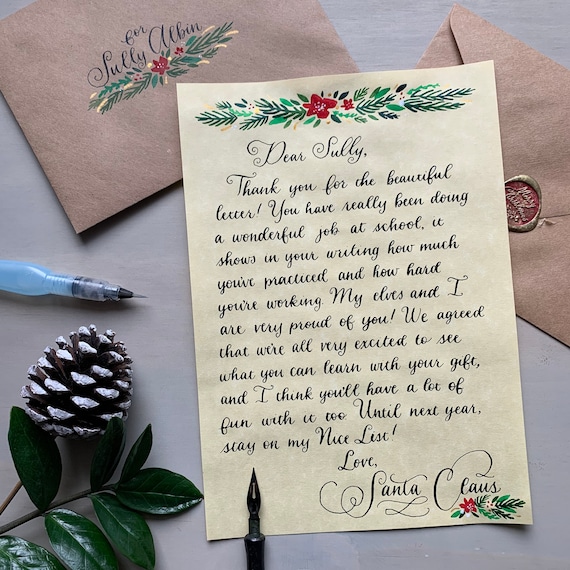 for
Sully Albin
Dear Sully,
Thank you for the beautiful
letter! You have really been doing
a wonderful job at school, it
shows in your writing how much
you've practiced and how hard
you're working. My elves and I
are very proud of you! We agreed
that we're all very excited to see
what you can learn with your gift,
and I think you'll have a lot of
fun with it too Until next year,
stay on my Nice List!
Love,
Santa Claus